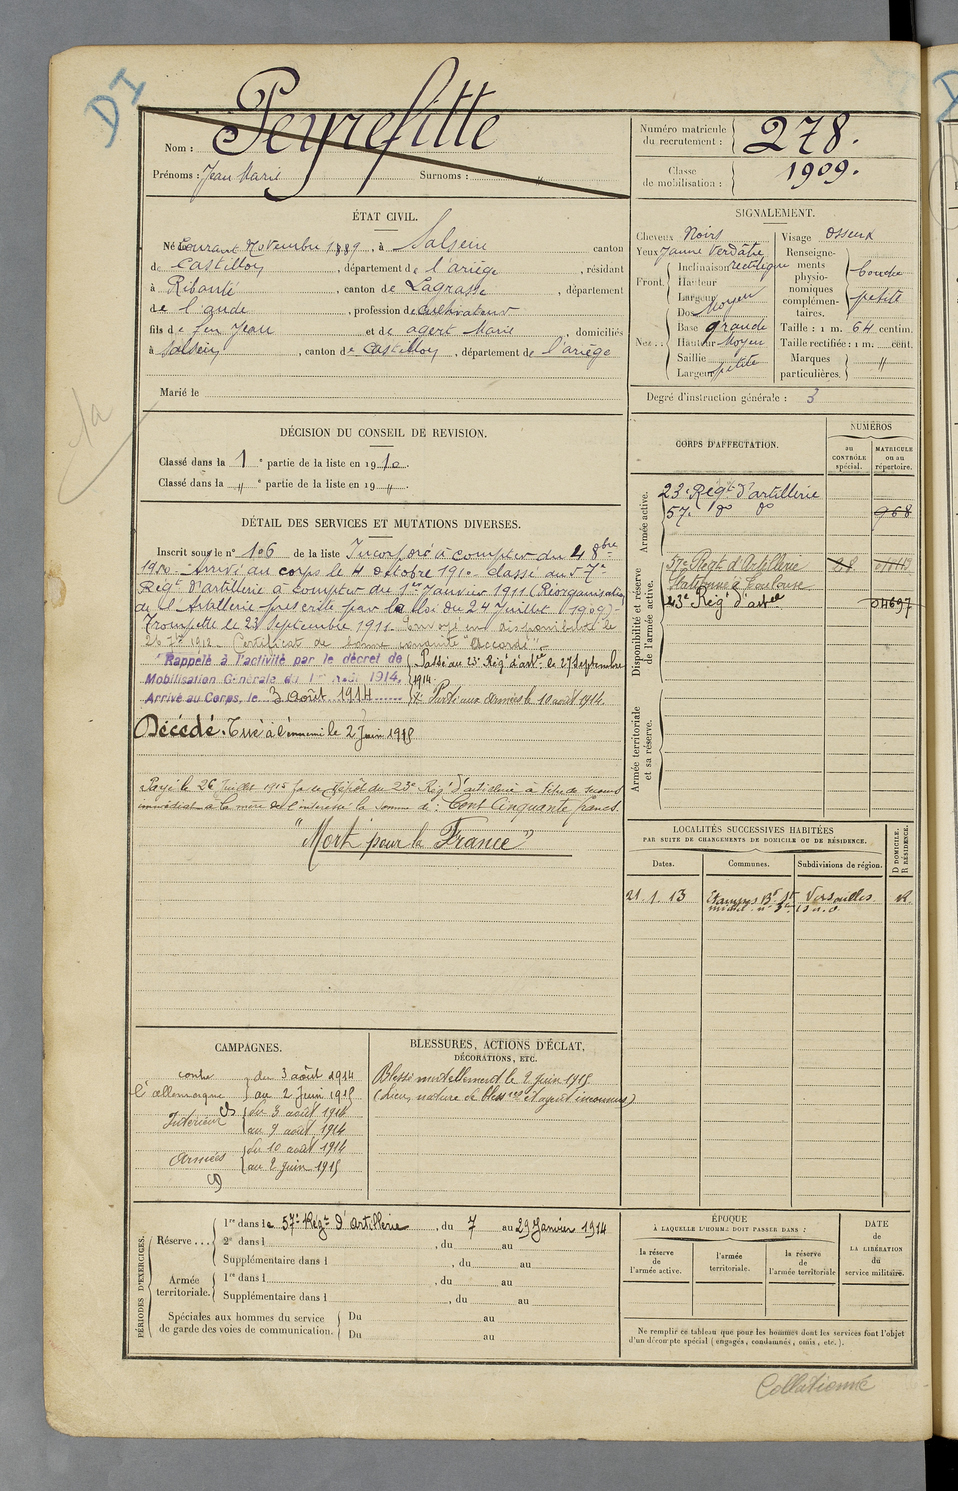 DI
Nom : Peyrefitte
Prénoms : Jean Marie Surnoms : "
Numéro matricule du recrutement : 278.
Classe de mobilisation : 1909.
ÉTAT CIVIL.
Né le courant Novembre 1889, à Salsein canton
de Castillon, département de l'ariège, résidant
à Ribauté, canton de Lagrasse, département
de l'aude, profession de cultivateur
fils de feu Jean et de agert Marie, domiciliés
à Salsein, canton de Castillon, département de l'ariège
Marié le
SIGNALEMENT.
Cheveux Noirs
Yeux Jaune Verdâtre
Front. Inclinaison rectiligne
Hauteur
Largeur Moyen
Nez.. Dos
Base grande
Hauteur Moyen
Saillie
Largeur petite
Visage Osseux
Renseignements physionomiques complémentaires. bouche petite
Taille : 1 m. 64 centim.
Taille rectifiée : 1 m. cent.
Marques particulières. "
Degré d'instruction générale : 3
1a
DÉCISION DU CONSEIL DE REVISION.
Classé dans la 1e partie de la liste en 1910.
Classé dans la " e partie de la liste en 19 ".
DÉTAIL DES SERVICES ET MUTATIONS DIVERSES.
Inscrit sous le n° 106 de la liste Incorporé à compter du 4 8bre
1910. Arrivé au corps le 4 octobre 1910. classé au 57e
Régt d'artillerie à compter du 1er Janvier 1911 (Réorganisation
de l'Artillerie prescrite par la loi du 24 Juillet 1909)-
Trompette le 23 septembre 1911. Envoyé en disponibilité le
1912. Certificat de bonne conduite "Accordé".
Rappelé à l'activité par le décret de
Mobilisation Générale du 1er Août 1914,
Arrivé au Corps, le 3 août 1914
Passé au 23e Rég. d'artie le 27 Septembre
1914.
Parti aux armées le 10 août 1914.
Décédé. Tué à l'ennemi le 2 Juin 1915
Payé le 26 Juillet 1915 par le Dépôt du 23e Rég. d'artillerie à titre de secours
immédiat à la mère de l'intéressé la somme de : Cent Cinquante francs.
"Mort pour la France"
CORPS D'AFFECTATION.
NUMÉROS
au CONTRÔLE spécial.
MATRICULE ou au répertoire.
Armée active.
23e Régt d'artillerie
57e do do 968
Disponibilité et réserve de l'armée active.
57e Regt d'Artillerie
Stationné à Toulouse
23e Rég. d'artie 04697
Armée territoriale et sa réserve.
LOCALITÉS SUCCESSIVES HABITÉES
PAR SUITE DE CHANGEMENTS DE DOMICILE OU DE RÉSIDENCE.
Dates. Communes. Subdivisions de région. D DOMICILE. R RÉSIDENCE.
21. 1. 13 Etampes Bd St Versailles R.
CAMPAGNES.
contre l'allemagne du 3 août 1914
au 2 Juin 1915
Intérieur CS du 3 août 1914
au 9 août 1914
Armées du 10 août 1914
au 2 Juin 1915
BLESSURES, ACTIONS D'ÉCLAT,
DÉCORATIONS, ETC.
Blessé mortellement le 2 juin 1915
(Lieu, nature de blessres et agent inconnus)
PÉRIODES D'EXERCICES.
Réserve ... 1re dans le 57e Régt d'Artillerie, du 7 au 29 Janvier 1914
2e dans l , du au
Supplémentaire dans l , du au
Armée territoriale. 1re dans l , du au
Supplémentaire dans l , du au
Spéciales aux hommes du service de garde des voies de communication. Du au
Du au
ÉPOQUE
À LAQUELLE L'HOMME DOIT PASSER DANS :
la réserve de l'armée active.
l'armée territoriale.
la réserve de l'armée territoriale
DATE de LA LIBÉRATION du service militaire.
Ne remplir ce tableau que pour les hommes dont les services font l'objet
d'un décompte spécial (engagés, condamnés, omis, etc.).
Collationné